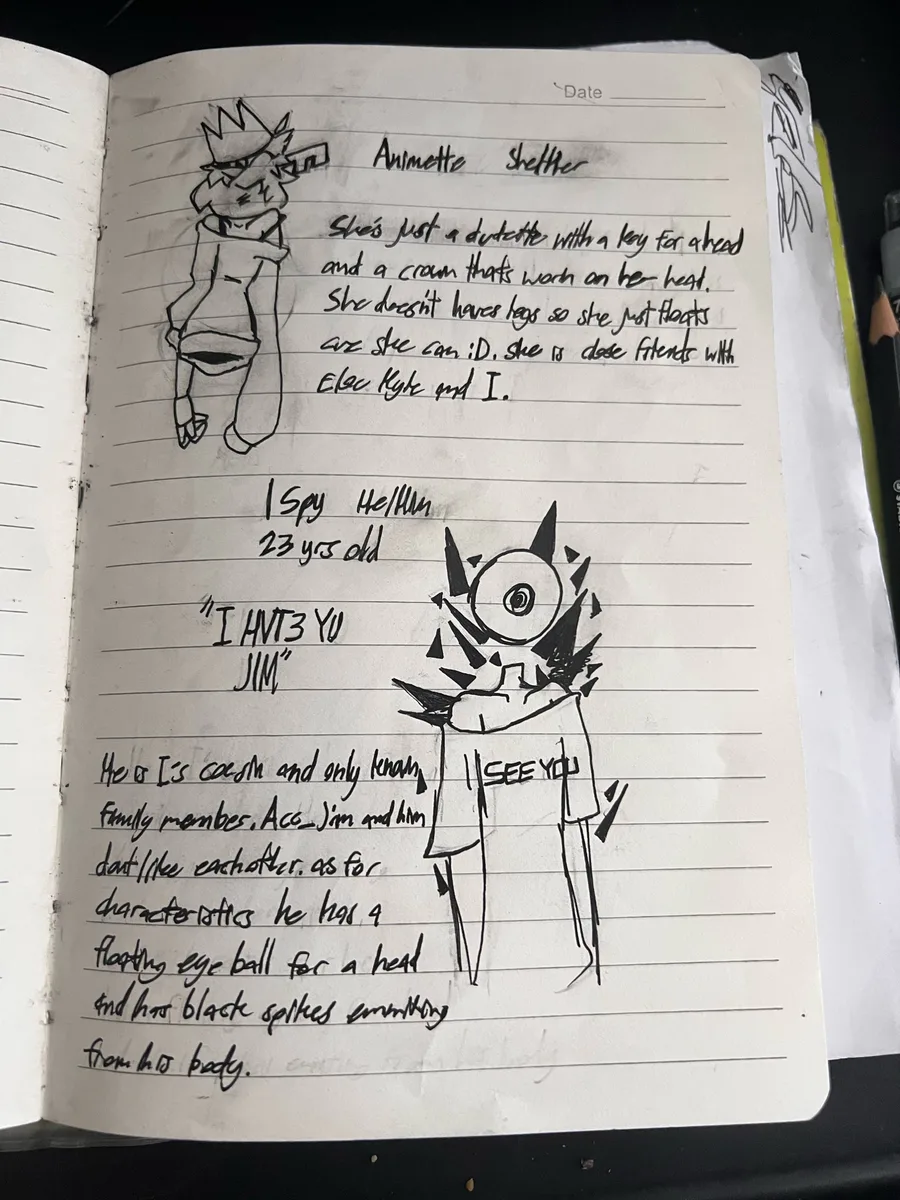 Date
Animette Sheltter
She's just a with a key for a head
and a crown thats worn on her head.
She doesn't haves legs so she just floats
she can :D. she is close friends with
Elec Kyle and I.
I Spy
23 yrs old
"I HVT3 YU
JIM"
I SEE YOU
He is I's and only known
family member. Acc_ Jim and him
dont like eachother. as for
characteristics he has a
floating eye ball for a head
and has black spikes
from his body.